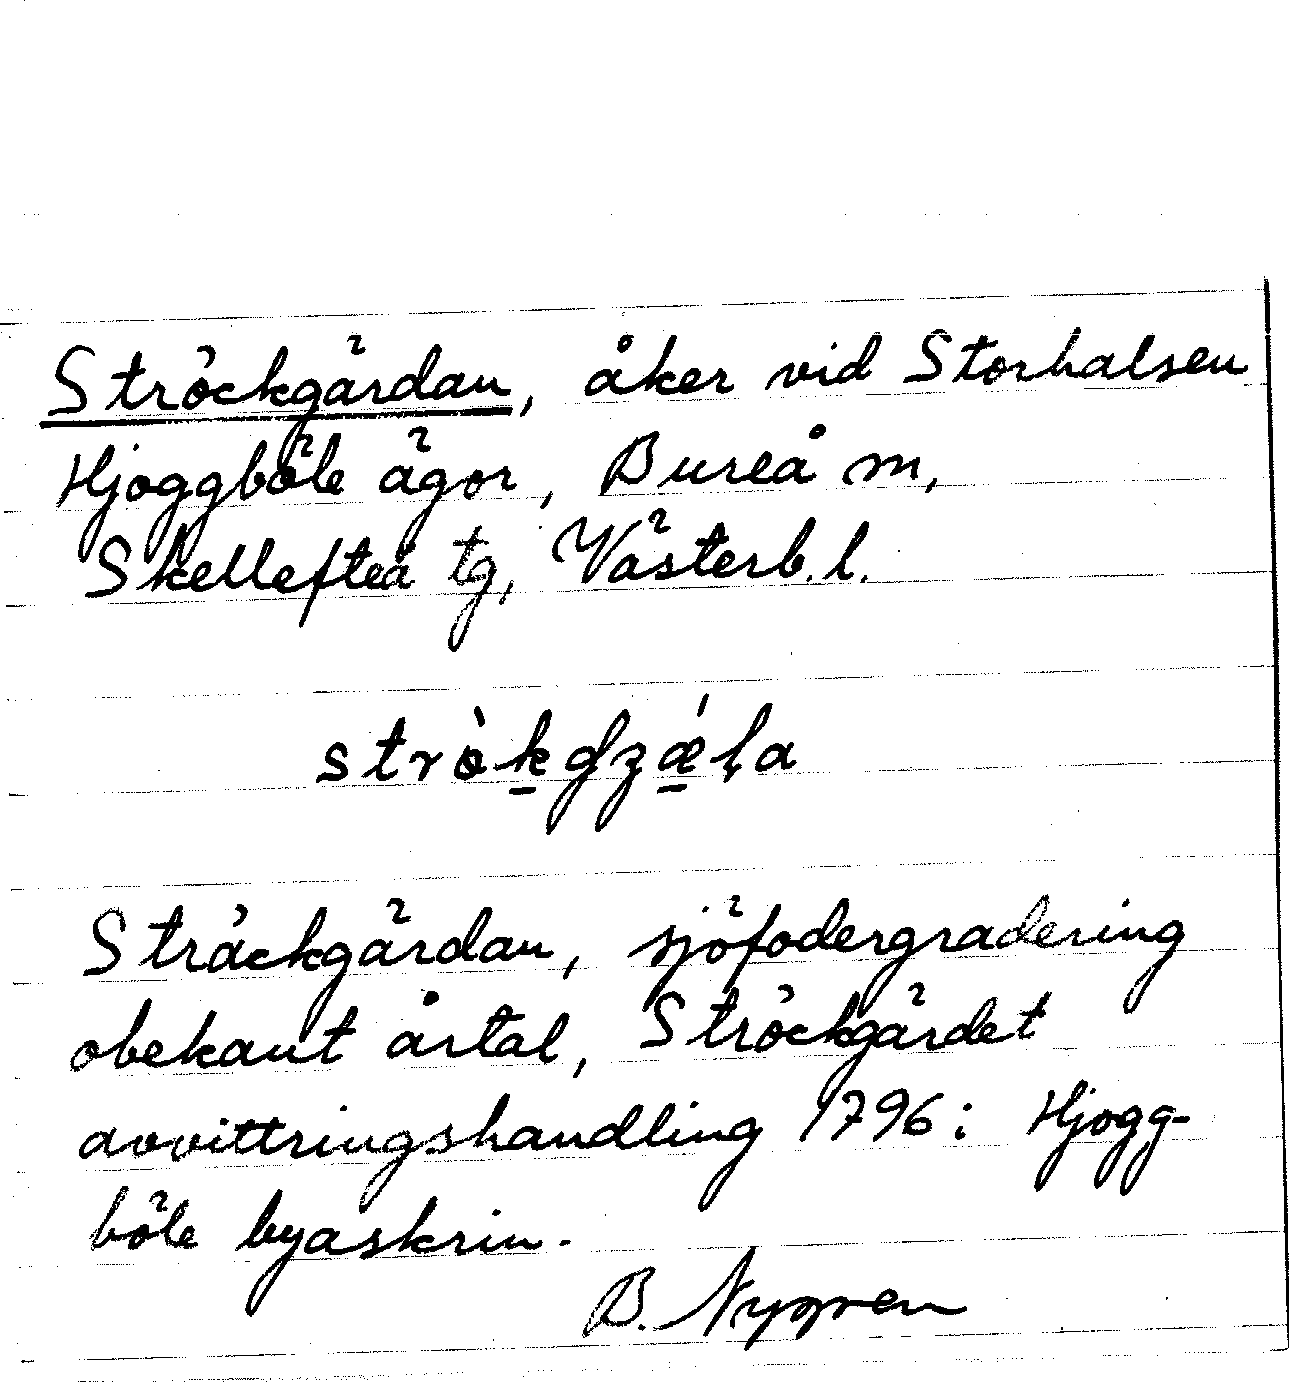 Ströckgärdan, åker vid Storhalsen
Hjoggböle ägor, Bureå m,
Skellefteå tg, Västerb. l.
Sträckgärdan, sjöfodergradering
obekant årtal, Ströckgärdet
avvittringshandling 1796: Hjogg-
böle byaskrin.
B. Nygren